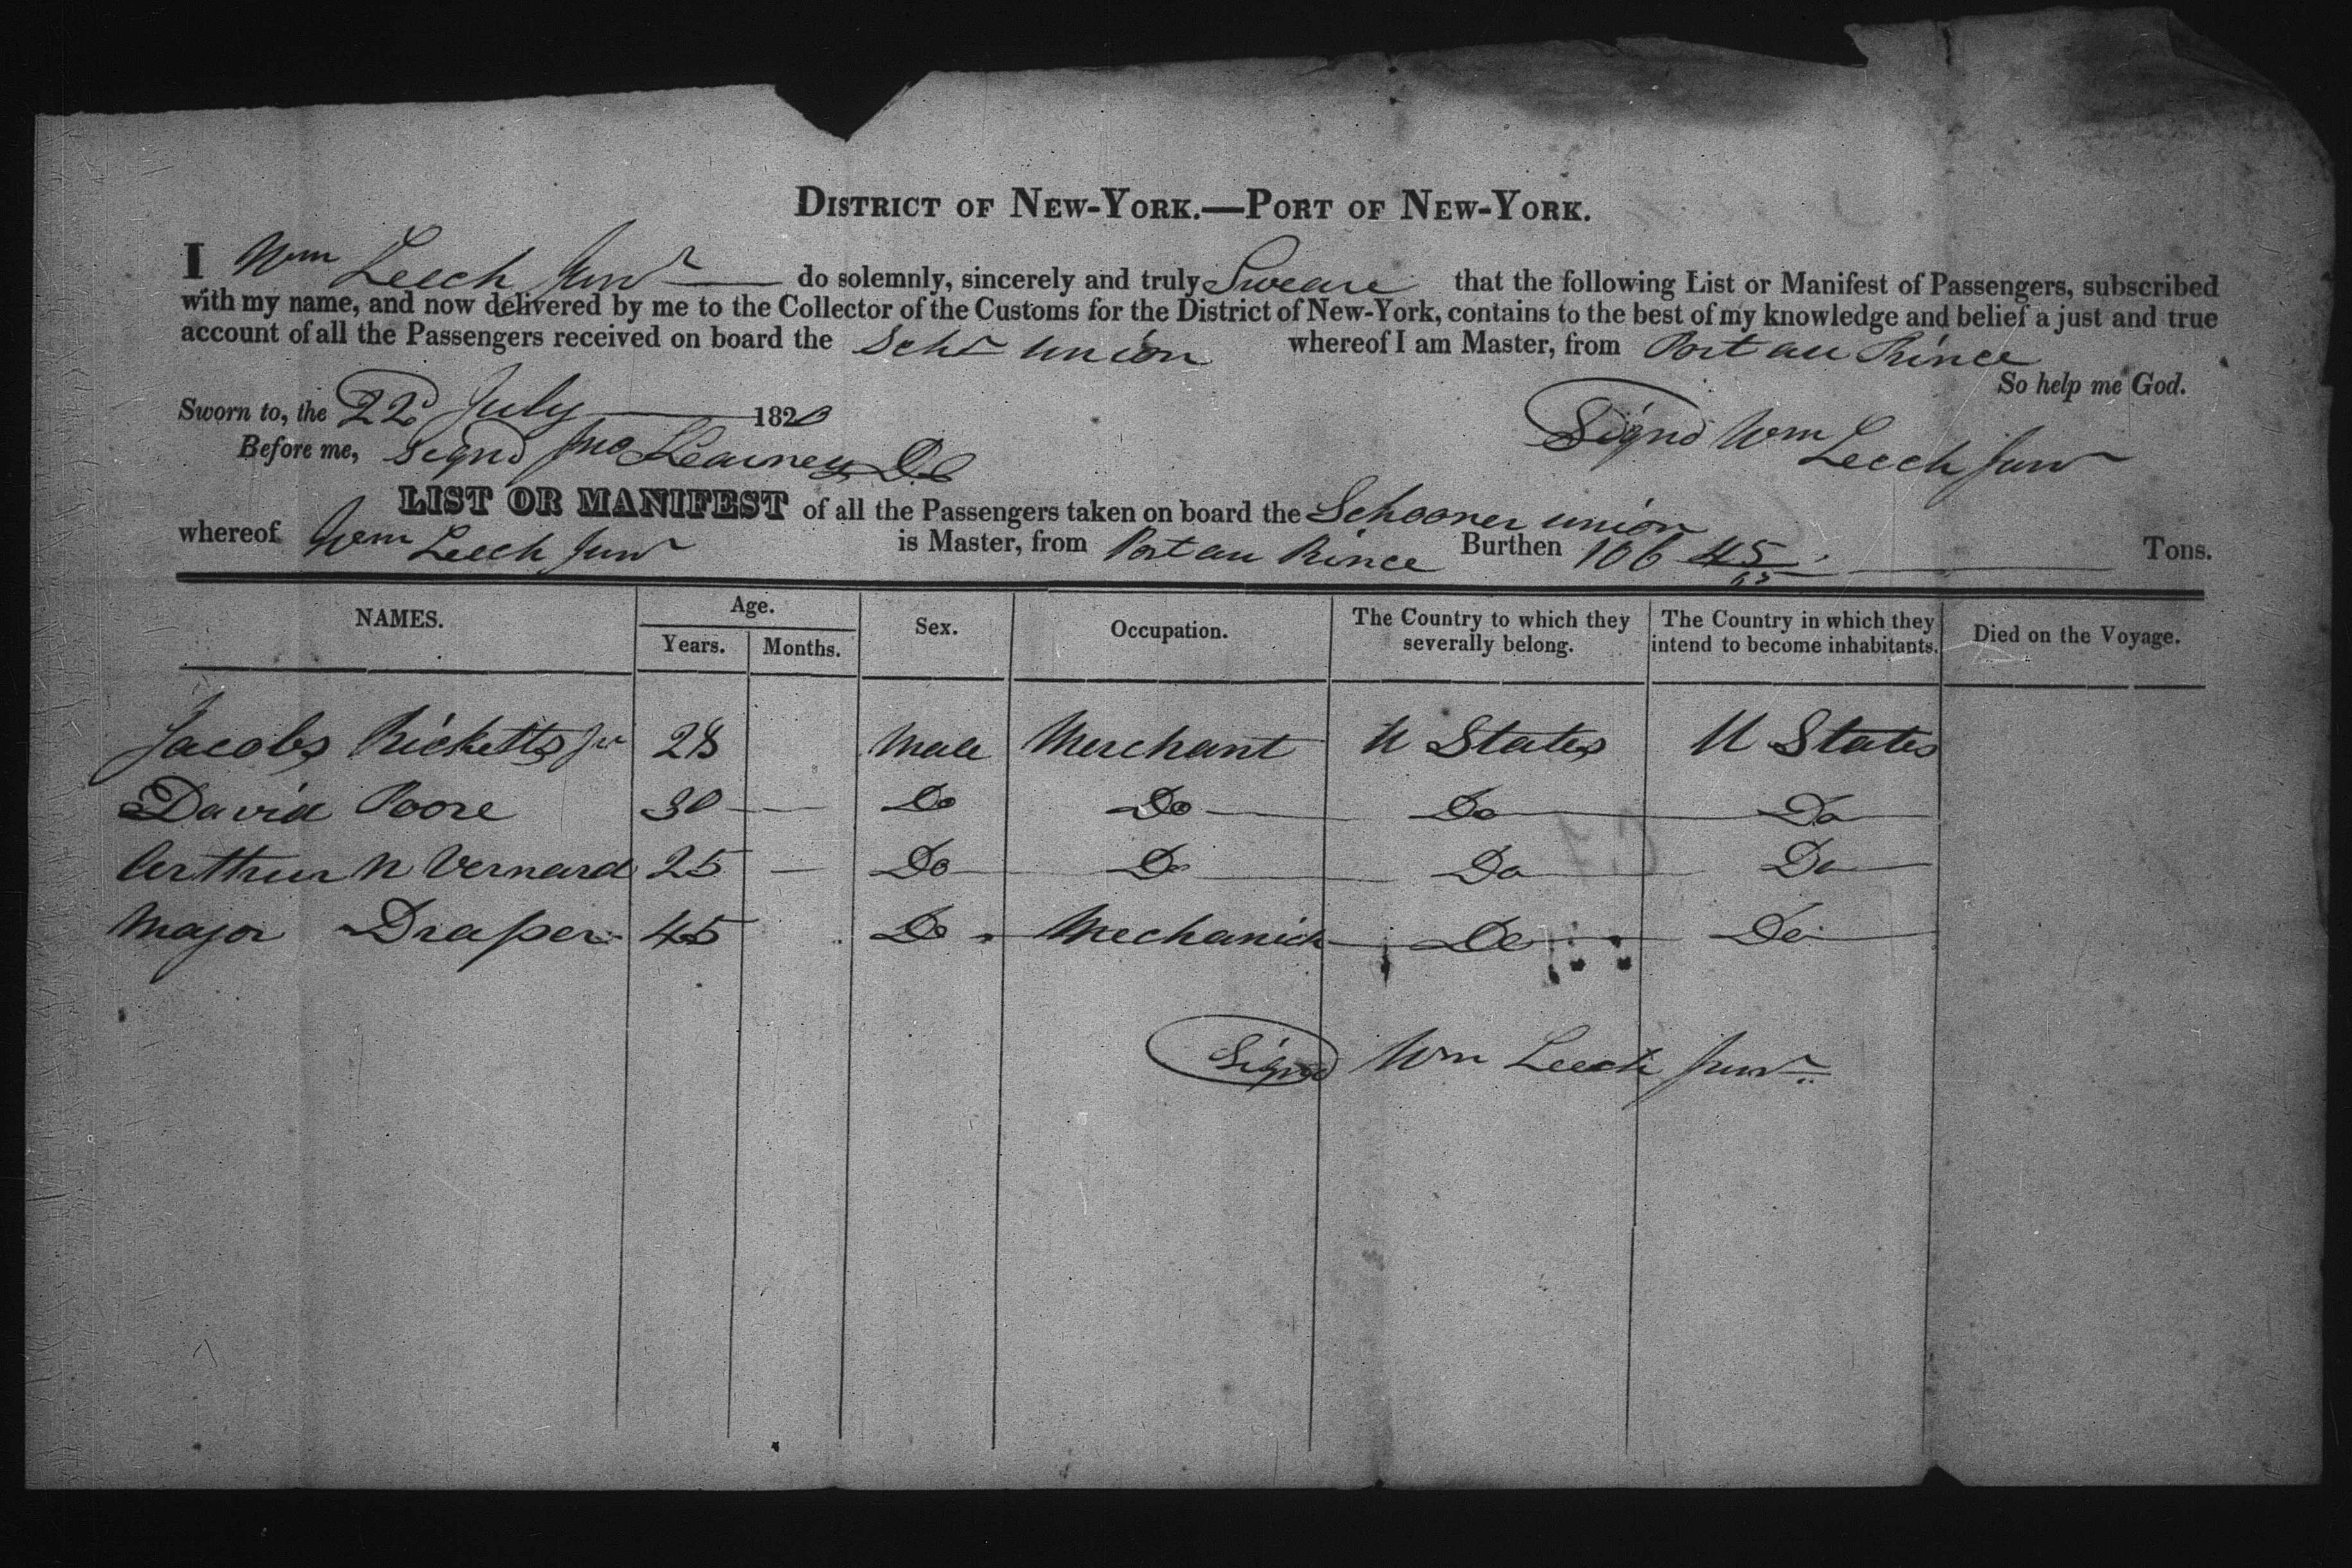 DISTRICT OF NEW-YORK.—PORT OF NEW-YORK.
I Wm Leech Junr do solemnly, sincerely and truly Sweare that the following List or Manifest of Passengers, subscribed
with my name, and now delivered by me to the Collector of the Customs for the District of New-York, contains to the best of my knowledge and belief a just and true
account of all the Passengers received on board the Schr union whereof I am Master, from Port au Prince
So help me God.
Sworn to, the 22d July 1820
Before me, Signd Jno Signd Wm Leech Junr
LIST OR MANIFEST of all the Passengers taken on board the Schooner union
whereof Wm Leech Junr is Master, from Port au Prince Burthen 106 45/95 Tons.
NAMES. Age. Years. Months. Sex. Occupation. The Country to which they severally belong. The Country in which they intend to become inhabitants. Died on the Voyage.
Jacobs Ricketts Jr 28 Male Merchant U States U States
David Poore 30 — Do Do Do Do
Arthur N Vernard 25 — Do Do Do Do
Major Draper 45 Do Mechanick Do Do
Signd Wm Leech Junr